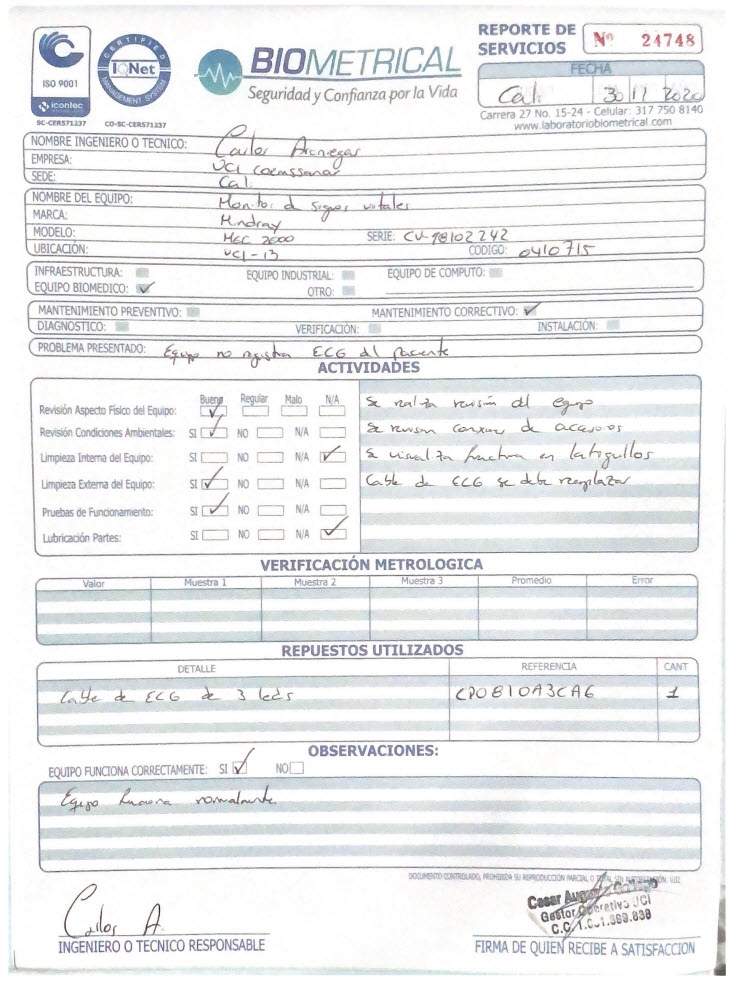 ISO 9001
icontec
SC-CER571237
CERTIFIED
IQNet
MANAGEMENT SYSTEM
CO-SC-CER571237
BIOMETRICAL
Seguridad y Confianza por la Vida
REPORTE DE SERVICIOS
Nº 24748
FECHA
Cali 30 11 2020
Carrera 27 No. 15-24 - Celular: 317 750 8140
www.laboratoriobiometrical.com
NOMBRE INGENIERO O TECNICO: Carlos Arciniegas
EMPRESA: UCI Coemssanar
SEDE: Cali
NOMBRE DEL EQUIPO: Monitor d signos vitales
MARCA: Mindray
MODELO: MEC 2000 SERIE: CV-98102242
UBICACIÓN: UCI-13 CODIGO: 0410715
INFRAESTRUCTURA: EQUIPO INDUSTRIAL: EQUIPO DE COMPUTO:
EQUIPO BIOMEDICO: ✓ OTRO:
MANTENIMIENTO PREVENTIVO: MANTENIMIENTO CORRECTIVO: ✓
DIAGNOSTICO: VERIFICACIÓN: INSTALACIÓN:
PROBLEMA PRESENTADO: Equipo no registra ECG al paciente
ACTIVIDADES
Bueno Regular Malo N/A
Revisión Aspecto Físico del Equipo: ✓
Revisión Condiciones Ambientales: SI ✓ NO N/A
Limpieza Interna del Equipo: SI NO N/A ✓
Limpieza Externa del Equipo: SI ✓ NO N/A
Pruebas de Funcionamiento: SI ✓ NO N/A
Lubricación Partes: SI NO N/A ✓
Se realiza revisión del equipo
Se revisan conexion de accesorios
Se visualiza fractura en latiguillos
Cable de ECG se debe reemplazar
VERIFICACIÓN METROLOGICA
Valor Muestra 1 Muestra 2 Muestra 3 Promedio Error
REPUESTOS UTILIZADOS
DETALLE REFERENCIA CANT
Cable de ECG de 3 leds CP0810A3CA6 1
OBSERVACIONES:
EQUIPO FUNCIONA CORRECTAMENTE: SI ✓ NO
Equipo funciona normalmente
DOCUMENTO CONTROLADO, PROHIBIDA SU REPRODUCCIÓN PARCIAL O TOTAL SIN AUTORIZACIÓN.
Carlos A.
INGENIERO O TECNICO RESPONSABLE
Cesar
Gestor Operativo UCI
C.C.
FIRMA DE QUIEN RECIBE A SATISFACCION